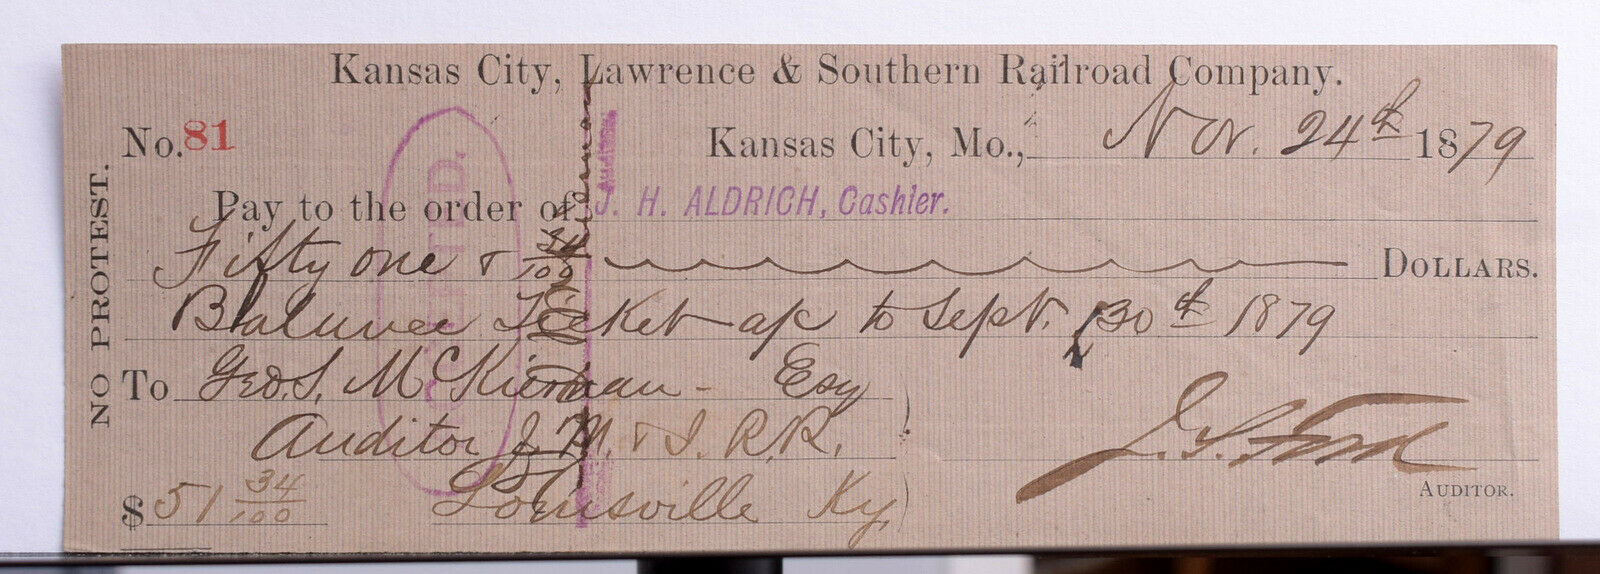 Kansas City, Lawrence & Southern Railroad Company.
No. 81
Kansas City, Mo., Nov. 24th 1879
NO PROTEST.
Pay to the order of J. H. ALDRICH, Cashier.
Fifty one & 34/100 DOLLARS.
Balance Ticket a/c to Sept. 30th 1879
To Geo. S. McKiernan - Esq
Auditor J. M. & I. R.R.
Louisville Ky.
$ 51 34/100
AUDITOR.